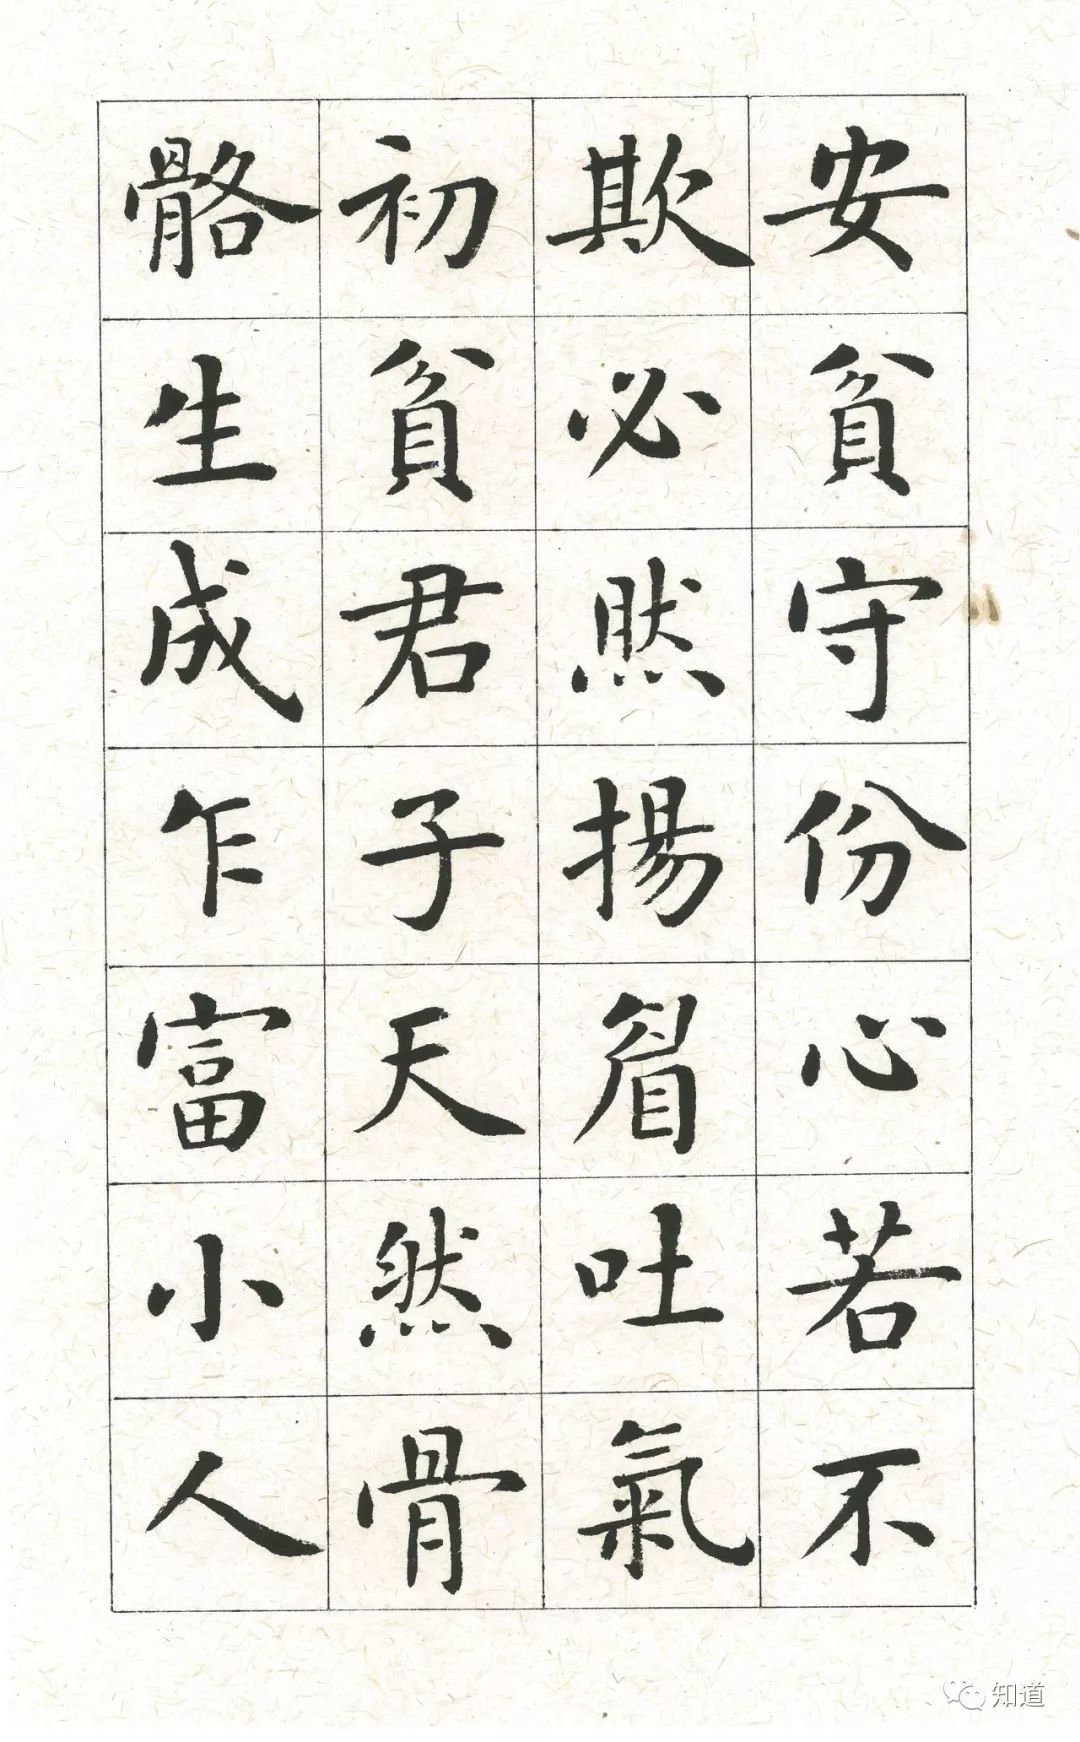 安貧守份心若不
欺必然揚眉吐氣
初貧君子天然骨
骼生成乍富小人
知道